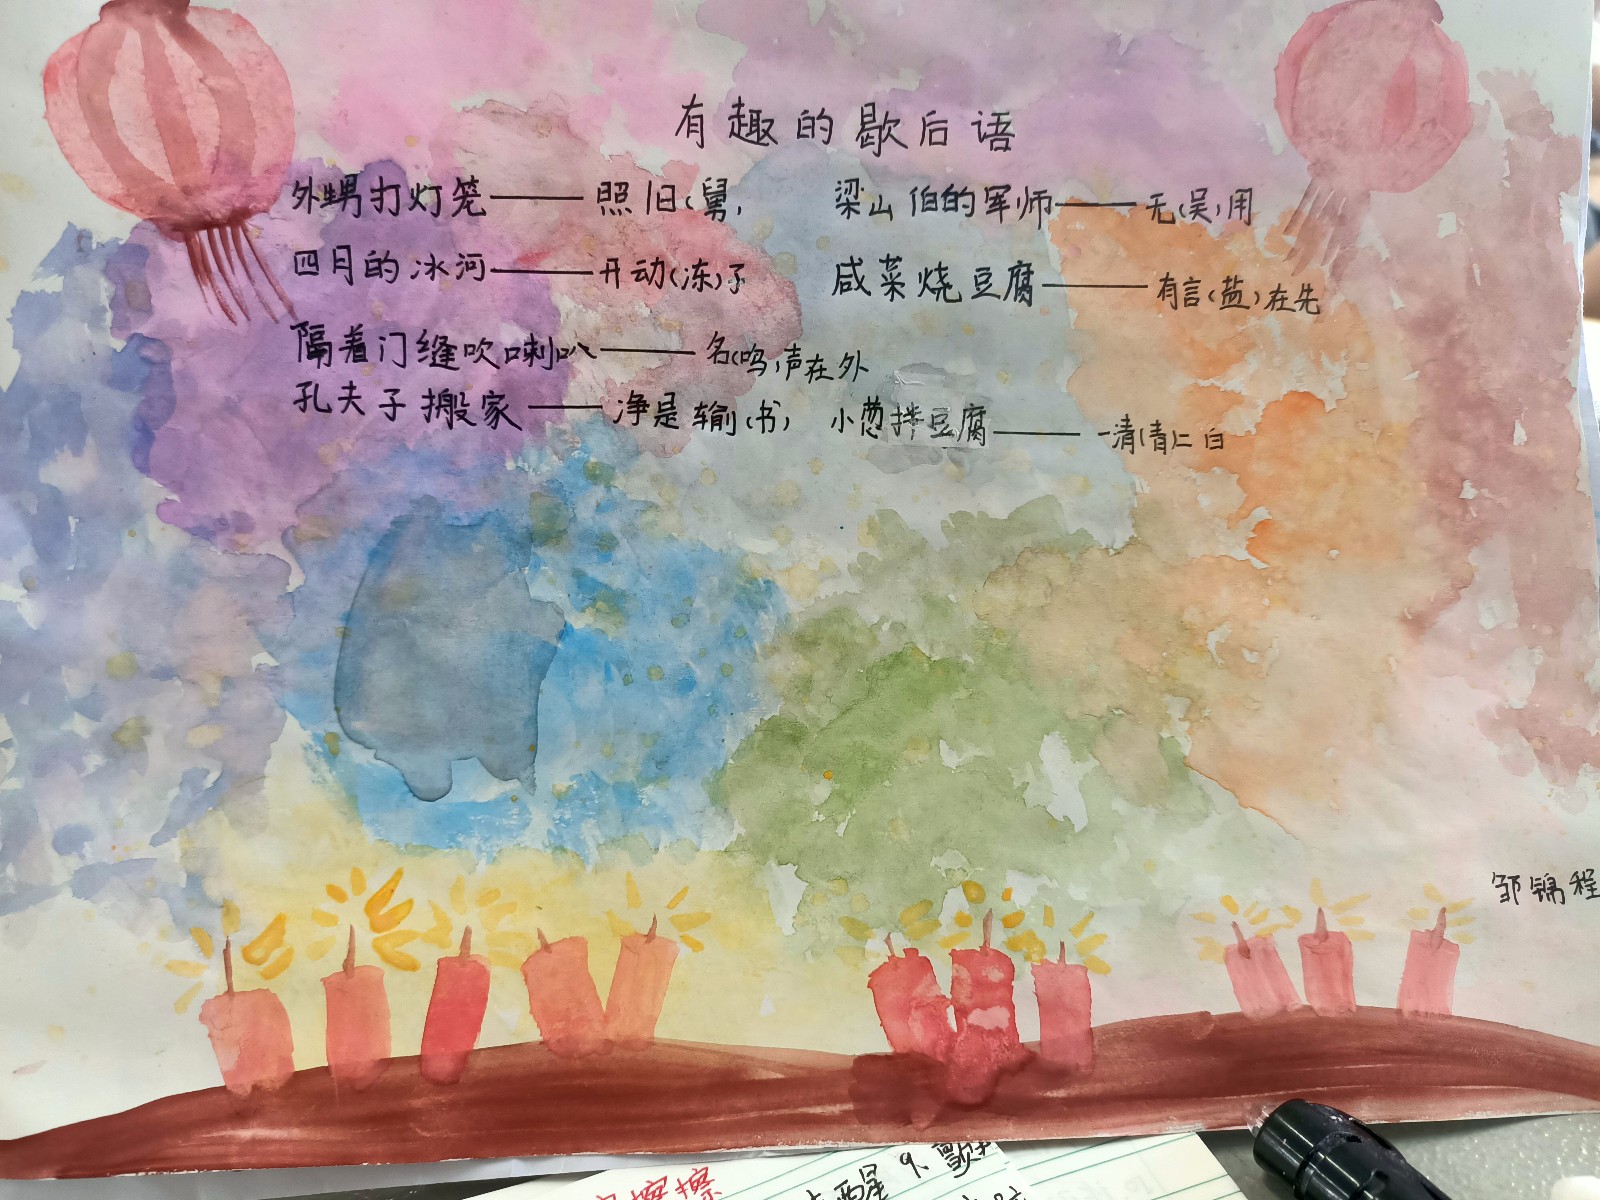 有趣的歇后语
外甥打灯笼——照旧(舅)
四月的冰河——开动(冻)了
隔着门缝吹喇叭——名(鸣)声在外
孔夫子搬家——净是输(书)
梁山伯的军师——无(吴)用
咸菜烧豆腐——有言(盐)在先
小葱拌豆腐——一清(青)二白
邹锦程
擦擦
9、歇